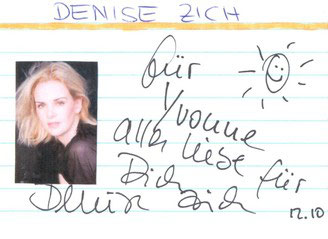 DENISE ZICH
für
Yvonne
alles liebe für
Dich
Denise Zich
12.10